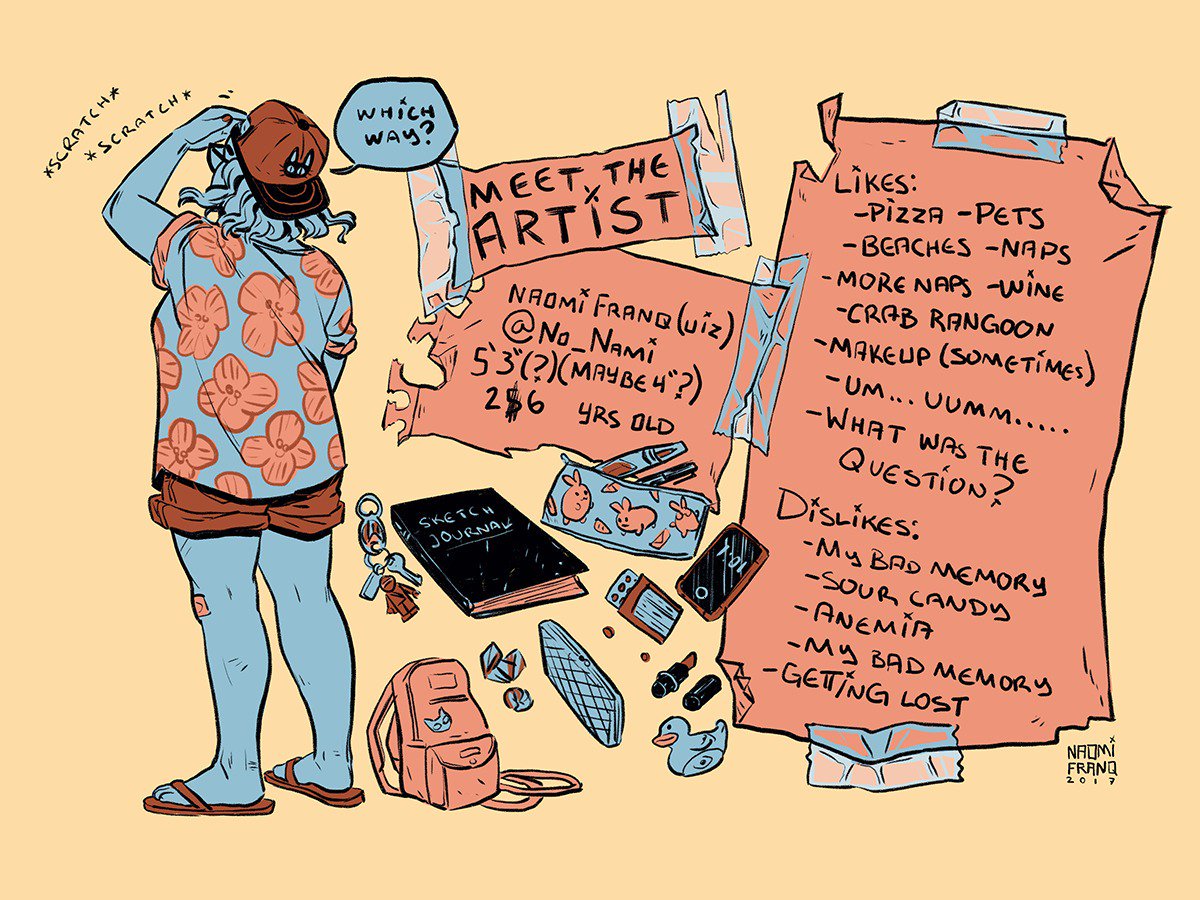 *SCRATCH*
*SCRATCH*
WHiCH
WAY?
MEET THE
ARTiST
NAOMi FRANQ(uiz)
@No_NAMi
5'3"(?)(MAYBE 4"?)
26 YRS OLD
LiKES:
-PiZZA -PETS
-BEACHES -NAPS
-MORE NAPS -WiNE
-CRAB RANGOON
-MAKEUP (SOMETiMES)
-UM... UUMM.....
-WHAT WAS THE
QUESTiON?
DiSLiKES:
-MY BAD MEMORY
-SOUR CANDY
-ANEMiA
-MY BAD MEMORY
-GETTiNG LOST
SKETCH
JOURNAL
NAOMi
FRANQ
2017